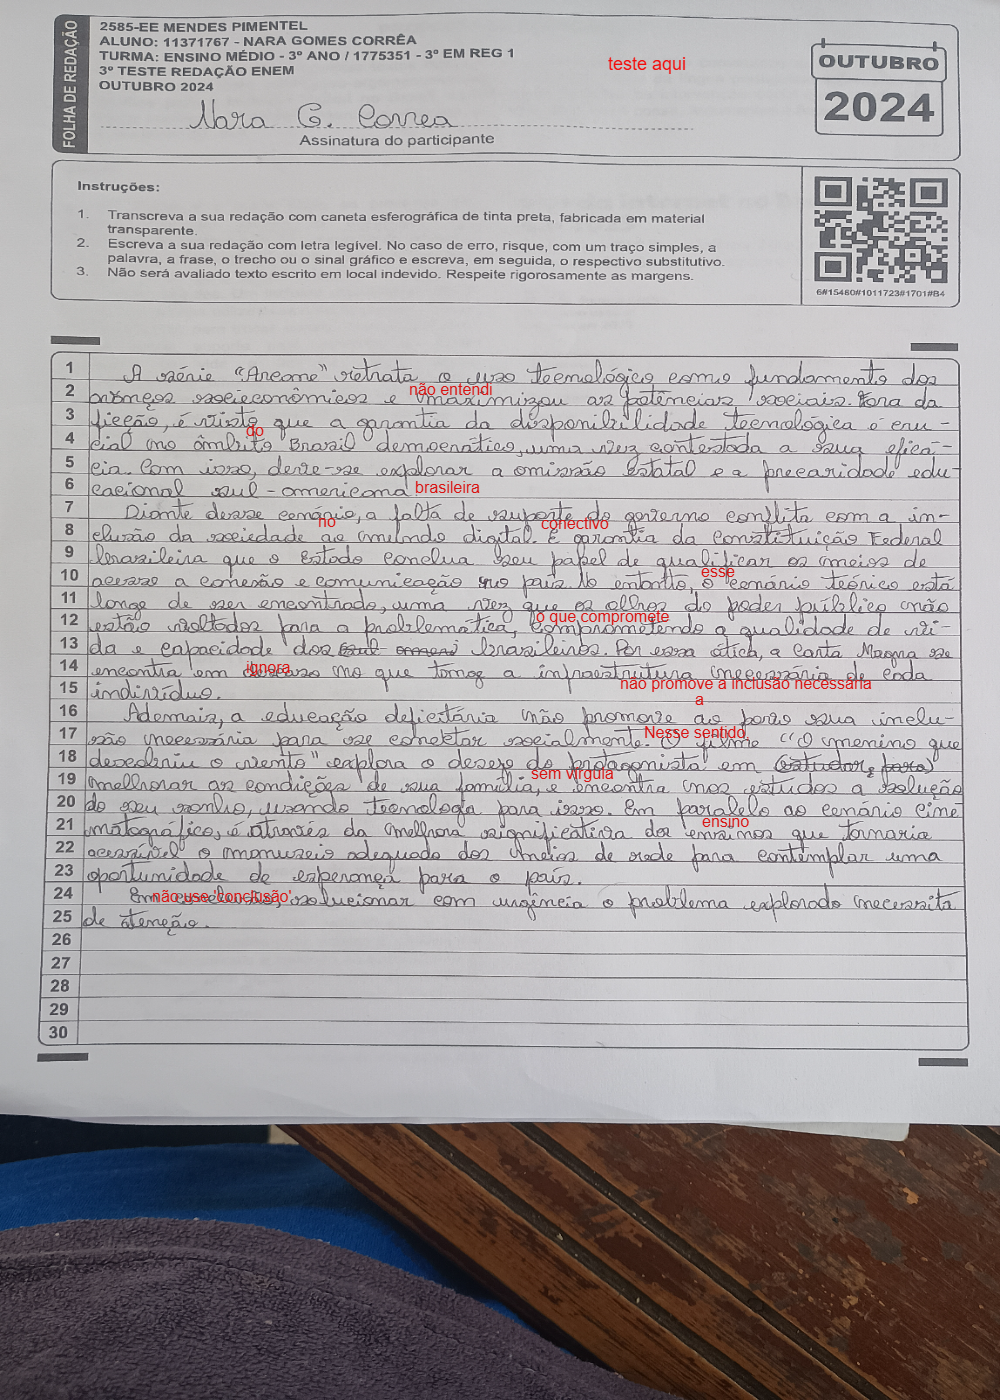 FOLHA DE REDAÇÃO
2585-EE MENDES PIMENTEL
ALUNO: 11371767 - NARA GOMES CORRÊA
TURMA: ENSINO MÉDIO - 3º ANO / 1775351 - 3º EM REG 1
3º TESTE REDAÇÃO ENEM
OUTUBRO 2024
teste aqui
OUTUBRO
2024
Nara G. Correa
Assinatura do participante
Instruções:
1. Transcreva a sua redação com caneta esferográfica de tinta preta, fabricada em material
transparente.
2. Escreva a sua redação com letra legível. No caso de erro, risque, com um traço simples, a
palavra, a frase, o trecho ou o sinal gráfico e escreva, em seguida, o respectivo substitutivo.
3. Não será avaliado texto escrito em local indevido. Respeite rigorosamente as margens.
6#15460#1011723#1701#B4
1 A série "Arcane" retrata o uso tecnológico como fundamento dos
não entendi
2 avanços socieconômicos e maximizou as potências sociais. Fora da
3 ficção, é visto que a garantia da disponibilidade tecnológica é cru-
do
4 cial no âmbito Brasil democrático, uma vez contestada a sua eficá-
5 cia. Com isso, deve-se explorar a omissão estatal e a precaridade edu-
6 cacional sul-americana brasileira
7 Diante desse cenário, a falta de suporte do governo conflita com a in-
no
conectivo
8 clusão da sociedade ao mundo digital. É garantia da Constituição Federal
9 brasileira que o Estado conclua seu papel de qualificar os meios de
esse
10 acesso a conexão e comunicação no país. No entanto, o cenário teórico está
11 longe de ser encontrado, uma vez que os olhos do poder público não
o que compromete
12 estão voltados para a problemática, comprometendo a qualidade de vi-
13 da e capacidade dos brasileiros. Por essa ótica, a Carta Magna se
ignora
14 encontra em descaso no que torna a infraestrutura necessária de cada
não promove a inclusão necessária
15 indivíduo.
a
16 Ademais, a educação deficitária não promove ao povo sua inclu-
Nesse sentido,
17 são necessária para se conectar socialmente. O filme "O menino que
18 descobriu o vento" explora o desejo do protagonista em (estudar, para)
sem vírgula
19 melhorar as condições de sua família, e encontra nos estudos a solução
20 do seu sonho, usando tecnologia para isso. Em paralelo ao cenário cine
ensino
21 matográfico, é através da melhora significativa dos ensinos que tornaria
22 acessível o manuseio adequado dos meios de rede para contemplar uma
23 oportunidade de esperança para o país.
não use 'conclusão'
24 Em conclusão, solucionar com urgência o problema explorado necessita
25 de atenção.
26
27
28
29
30